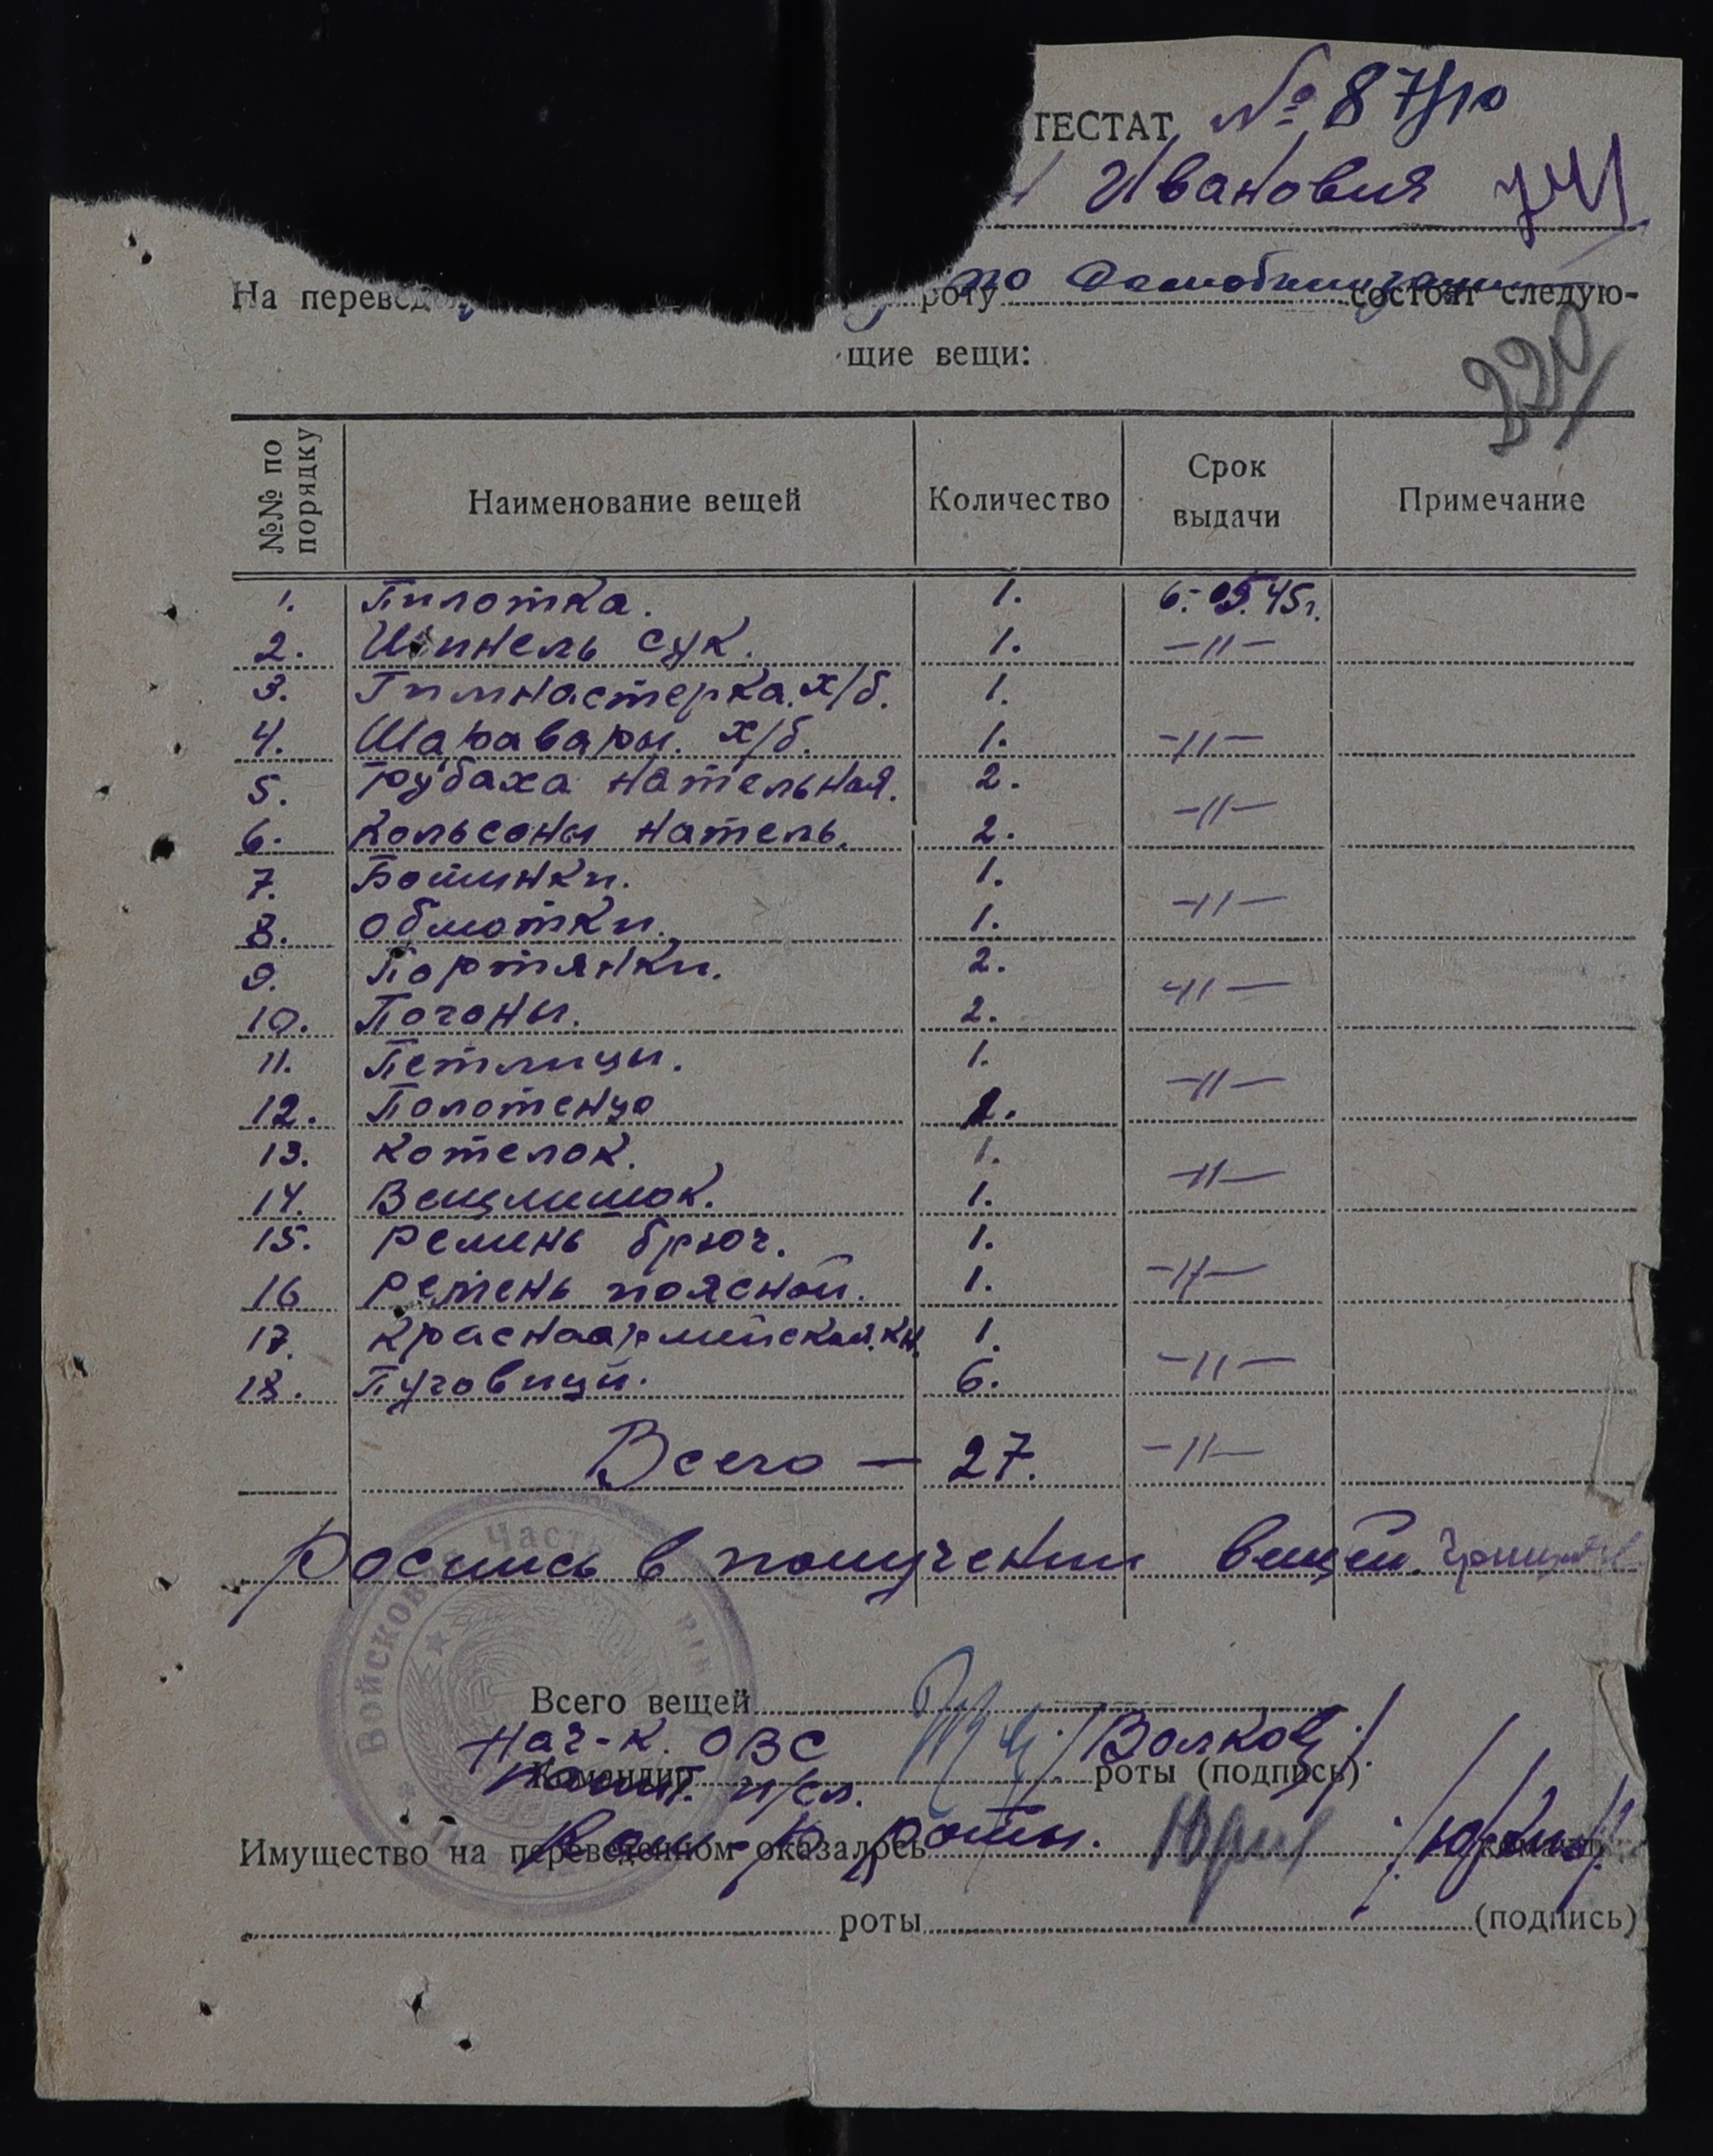 ТЕСТАТ № 87/10
Ивановия
На перевед роту по состоят следую-
щие вещи:
229
№№ по порядку Наименование вещей Количество Срок выдачи Примечание
1. Пилотка. 1. 6.-05.45г.
2. Шинель сук. 1. -11-
3. Гимнастерка. х/б. 1.
4. Шаравары. х/б. 1. -11-
5. Рубаха нательная. 2.
6. Кольсоны натель. 2. -11-
7. Ботинки. 1.
8. Обмотки. 1. -11-
9. Портянки. 2.
10. Погоны. 2. -11-
11. Петлицы. 1.
12. Полотенцо 1. -11-
13. Котелок. 1.
14. Вещмишок. 1. -11-
15. Ремень брюч. 1.
16 Ремень поясной. 1. -11-
17. Краснаармийская. кн. 1.
18. Пуговици. 6. -11-
Всего — 27. -11-
Роспись в получении вещей.
Войсковая Часть
Всего вещей
Нач-к. ОВС /Волков/
Командир роты (подпись)
п/сл.
Ком-р роты. /Юркин/
Имущество на переведенном оказалось команд
роты (подпись)